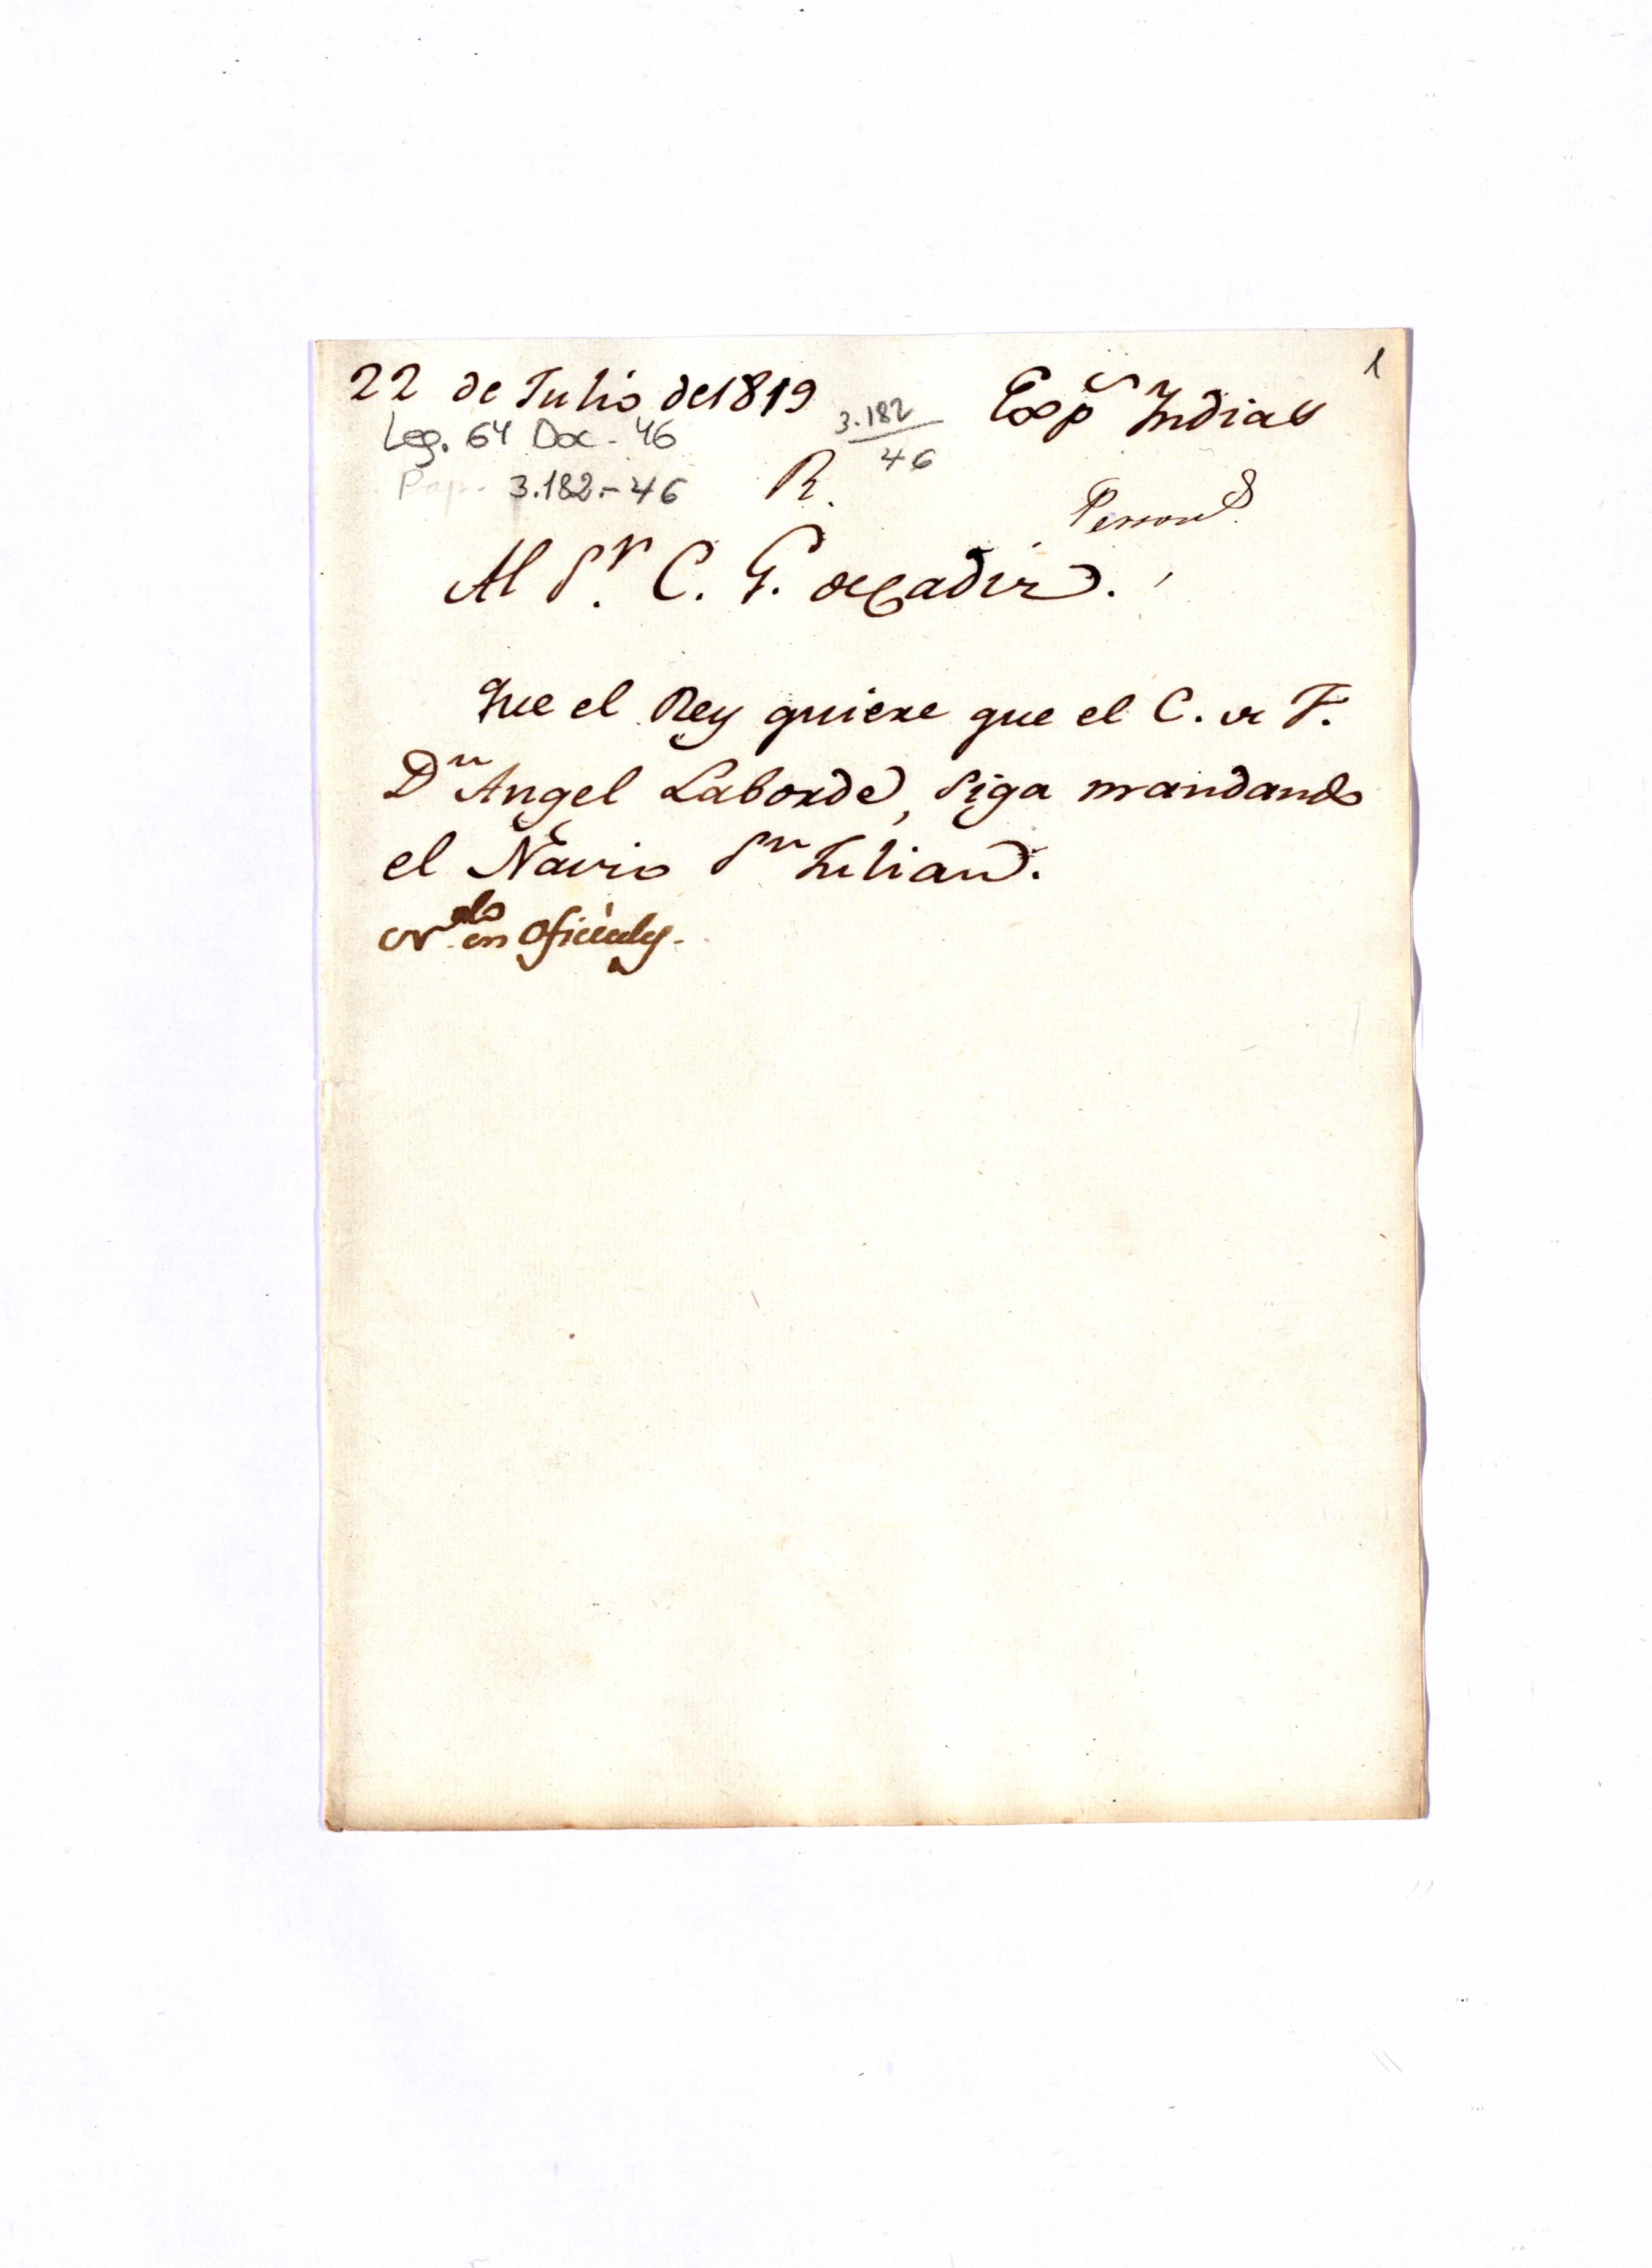 1
22 de Julio de 1819
Exps Indias
Leg. 64 Doc - 46
3.182
46
Pap. 3.182.- 46
R.
Personl.
Al Sr. C. G. de Cadiz.
Que el Rey quiere que el C. de F.
Dn Angel Laborde, siga mandando
el Navio Sn Julian.
en